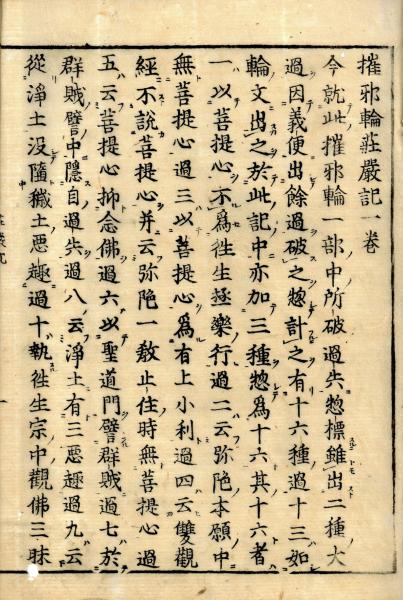 摧邪輪莊嚴記一卷
今就此摧邪輪一部中所破過失惣標雖出二種大
過因義便出餘過破之惣計之有十六種過十三如
輪文出之於此記中亦加三種惣爲十六其十六者
一以菩提心不爲往生極樂行過二云弥陁本願中
無菩提心過三以菩提心爲有上小利過四云雙觀
經不說菩提心并云弥陁一敎止住時無菩提心過
五云菩提心抑念佛過六以聖道門譬群賊過七於
群賊譬中隱自過失過八云淨土有三惡趣過九云
從淨土没墮穢土惡趣過十執往生宗中觀佛三昧